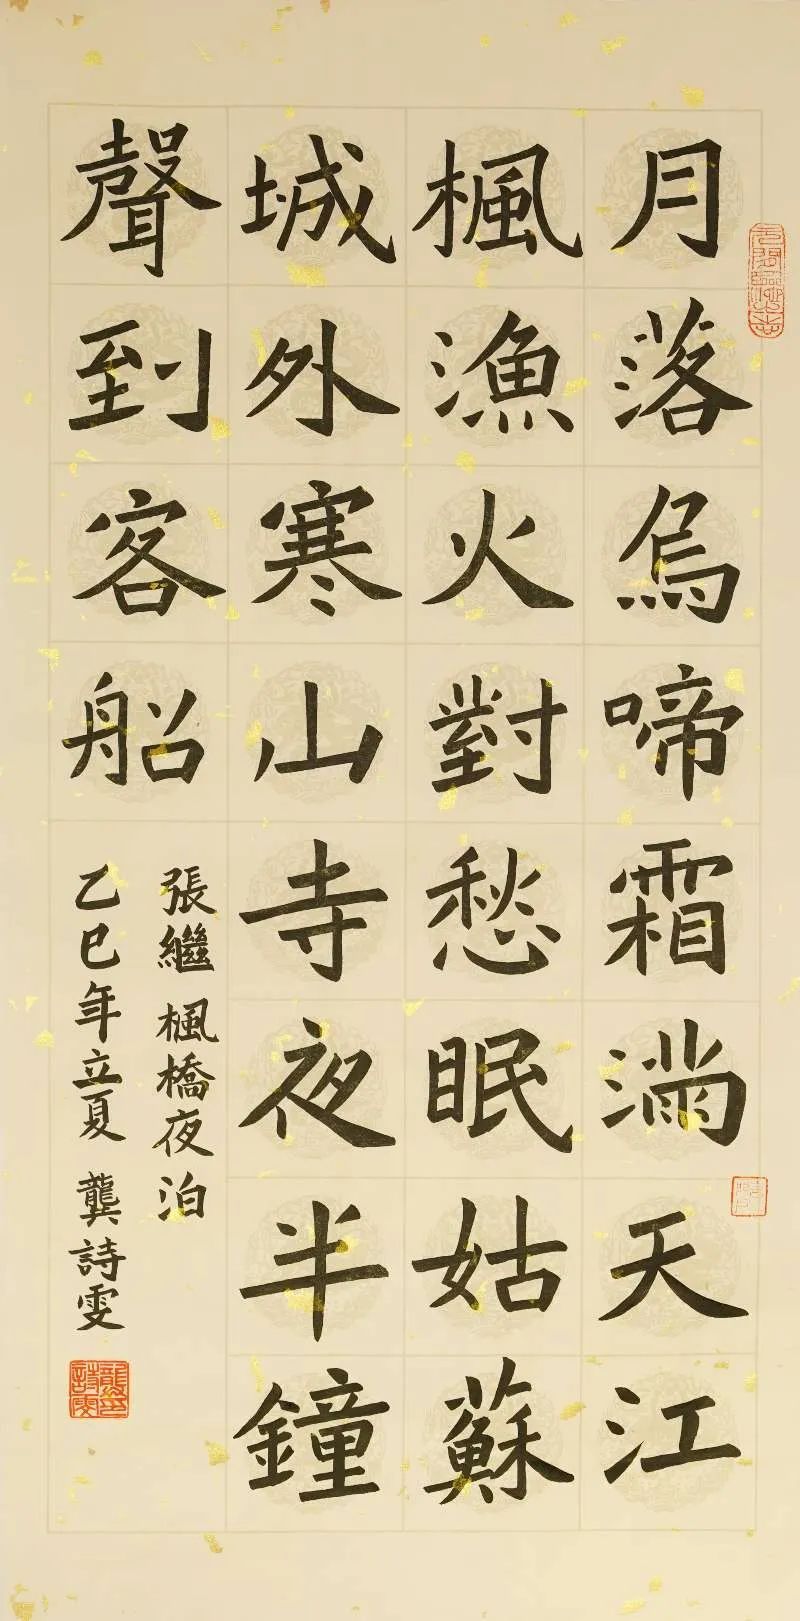 月落烏啼霜滿天江
楓漁火對愁眠姑蘇
城外寒山寺夜半鐘
聲到客船
張繼楓橋夜泊
乙巳年立夏 龔詩雯